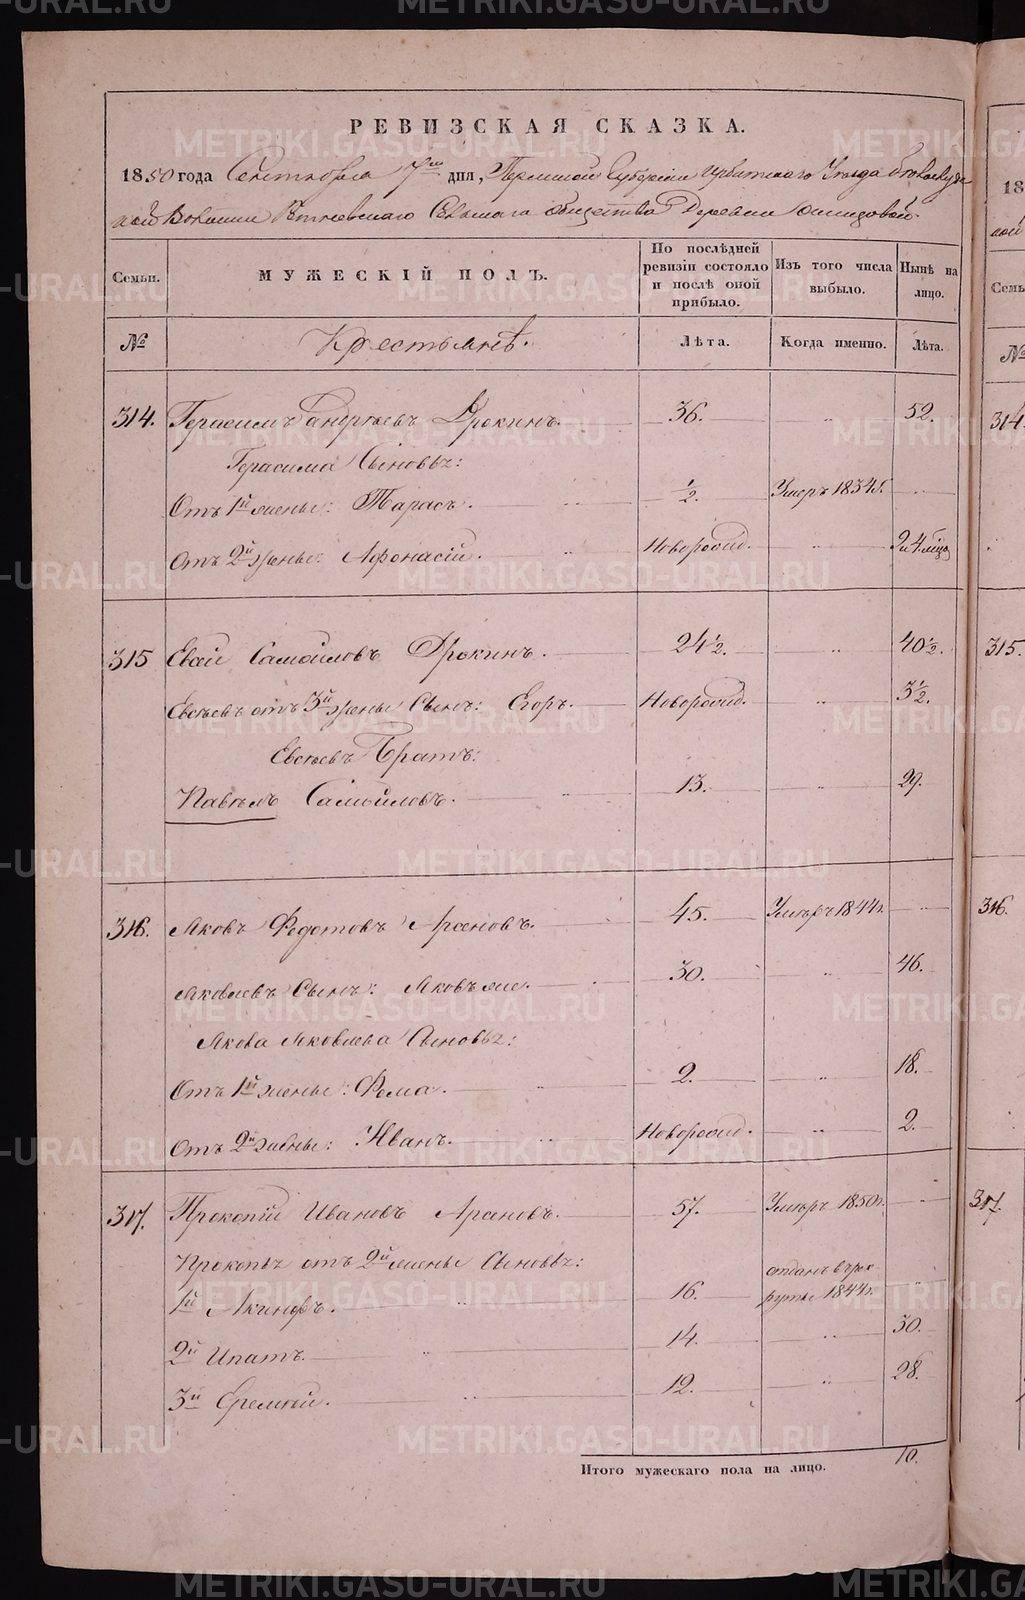 РЕВИЗСКАЯ СКАЗКА.
1850 года Сентября 7го дня, Пермской Губерніи Ирбитскаго Уѣзда
кой Волости Сельскаго общества Деревни
Семьи. МУЖЕСКІЙ ПОЛЪ. По послѣдней ревизіи состояло и послѣ оной прибыло. Изъ того числа выбыло. Нынѣ на лицо.
№ Крестьянѣ. Лѣта. Когда именно. Лѣта.
314. Герасимъ Андреевъ Дрокинъ. 36. 52.
Герасима Сыновья:
Отъ 1й жены: Тарасъ. ½. Умеръ 1834г.
Отъ 2й жены: Афонасій. Новорожд. 2 и 4 мѣсц
315 Евсѣй Самойловъ Дрокинъ. 24½. 40½.
Евсѣевъ отъ 3й жены Сынъ: Егоръ. Новорожд. 3½.
Евсѣевъ Братъ:
Павелъ Самойловъ. 13. 29.
316. Яковъ Федотовъ Арсновъ. 45. Умеръ 1844г.
Яковлевъ Сынъ: Яковъ же. 30. 46.
Якова Яковлева Сыновья:
Отъ 1й жены: Фома. 2. 18.
Отъ 2й жены: Иванъ. Новорожд. 2.
317. Прокопій Ивановъ Арсновъ. 57. Умеръ 1850г.
Прокопья отъ 2й жены Сыновья:
1й Акинфъ. 16. отданъ въ рекруты 1844г.
2й Ипатъ. 14. 30.
3й Еремѣй. 12. 28.
Итого мужескаго пола на лицо. 10.
18
кой
Семь
№
314.
315.
316.
317.
METRIKI.GASO-URAL.RU